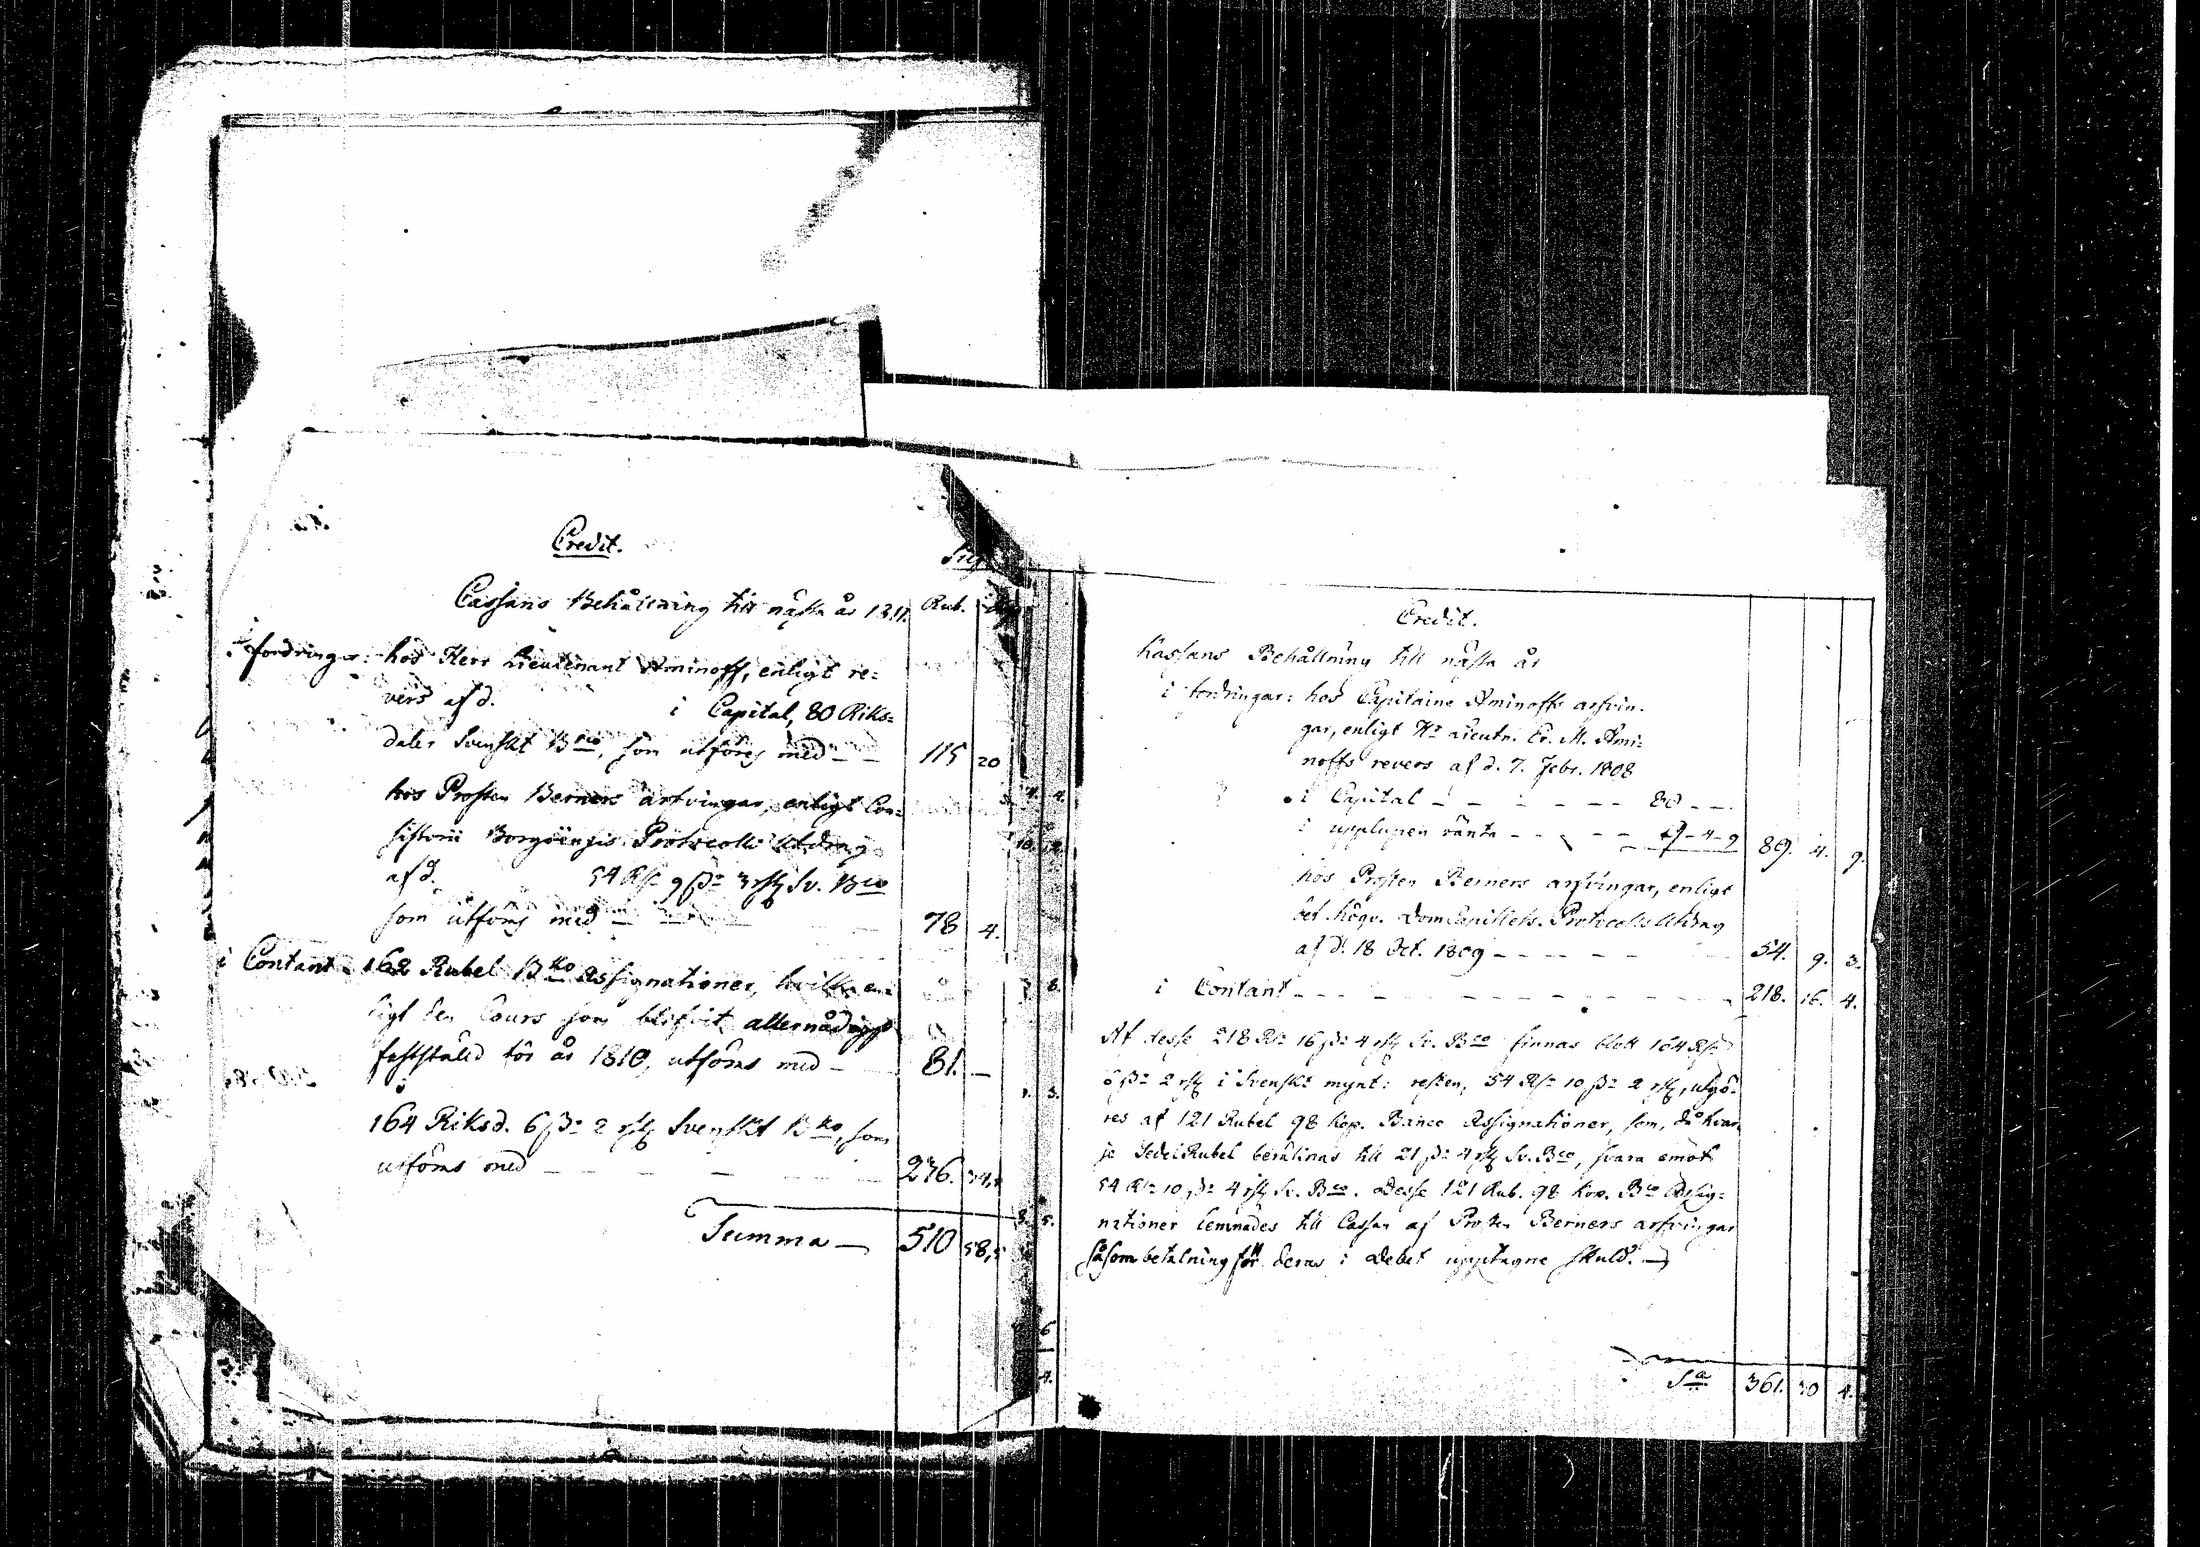 Credit.
Cassans Behållning till nästa år 1811. Rub.
i fordringar: hos Herr Lieutenant Aminoff, enligt re=
vers af d. i Capital, 80 Riks=
daler Svenskt Bco, som utföres med — — 115 20
hos Prosten Berners arfvingar, enligt Con=
sistorii Borgoënsis Protocolls Utdrag
af d. 54 Rd: 9 ß: 3 rst Sv. Bco
som utförs med — 78 4.
i Contant - 162 Rubel Bko Assignationer, hvilka en=
ligt den Cours som blifvit allernådigst
fastställd för år 1810, utförs med — 81. —
164 Riksd. 6 ß: 2 rst Svenskt Bko, som
utförs med — — — 236.
Summa — 510
Credit.
Kassans Behållning till nästa år
i fordringar: hos Capitaine Aminoffs arfvin-
gar, enligt Hr Lieutn. Er. M. Ami-
noffs revers af d. 7. Febr. 1808
i Capital — — — — — 80 — —.
i upplupen ränta — — — — 9 - 4 - 9 89. 4. 9.
hos Prosten Berners arfvingar, enligt
det högv. DomCapitlets Protocolls Utdrag
af d. 18 Oct. 1809 — — — — 54. 9. 3.
i Contant — — — — — — 218. 16. 4.
Af desse 218 Rd: 16 ß: 4 rst Sv. Bco finnas blott 164 Rd:
6 ß: 2 rst i Svenskt mynt: resten, 54 Rd: 10 ß: 2 rst, utgö-
res af 121 Rubel 98 kop. Banco Assignationer, som, då hvar
je SedelRubel beräknas till 21 ß: 4 rst Sv. Bco, svara emot
54 Rd: 10 ß: 4 rst Sv. Bco. Desse 121 Rub. 98 kop. Bco Assig-
nationer lemnades till Cassan af Prosten Berners arfvingar
såsom betalning för deras i Debet upptagne skuld. —
Sa 361. 30 4.